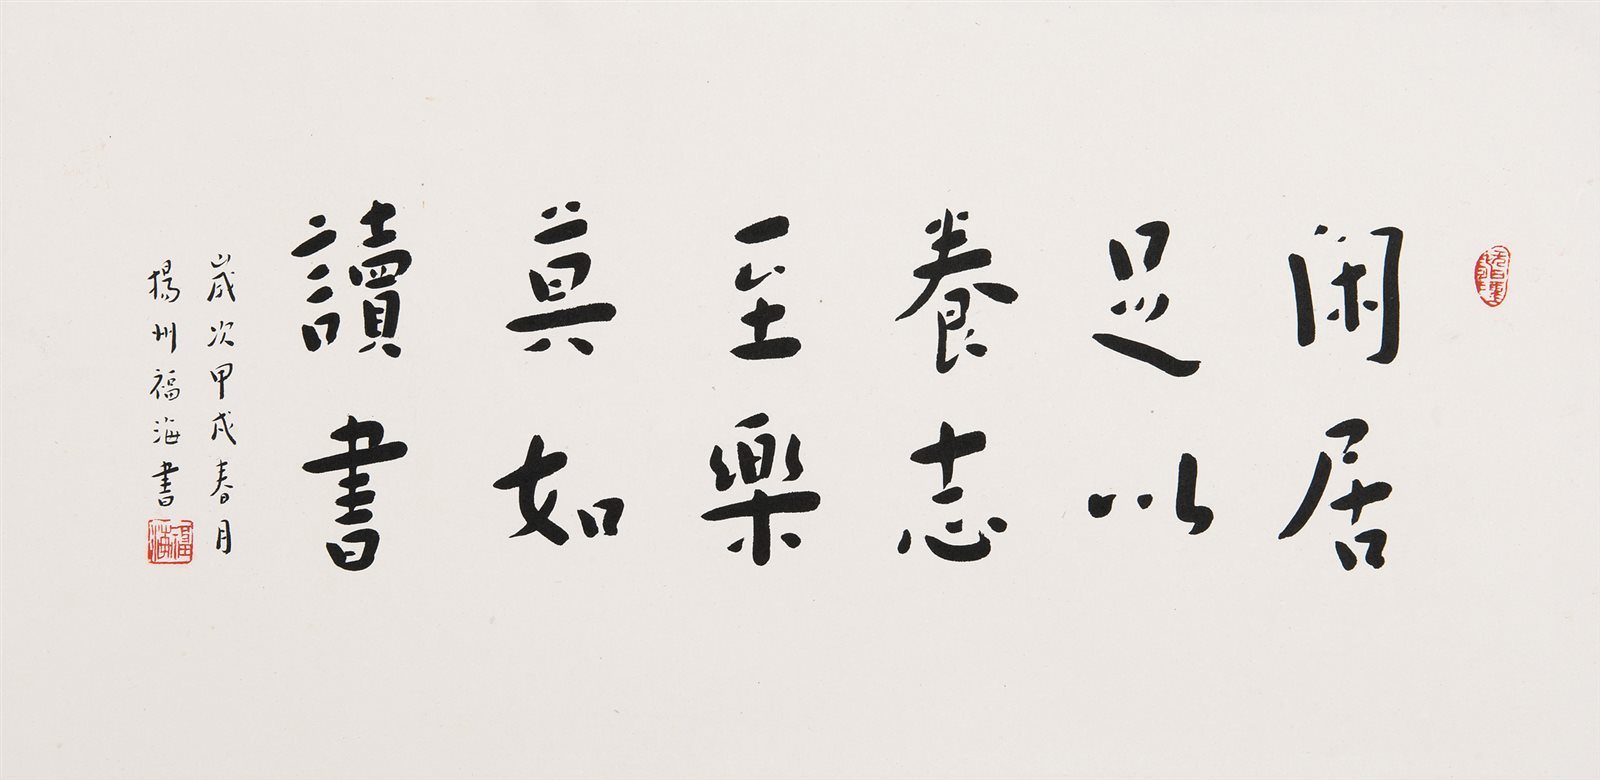 闲居
足以
養志
至樂
莫如
讀書
歲次甲戌春月
揚州福海書
福海